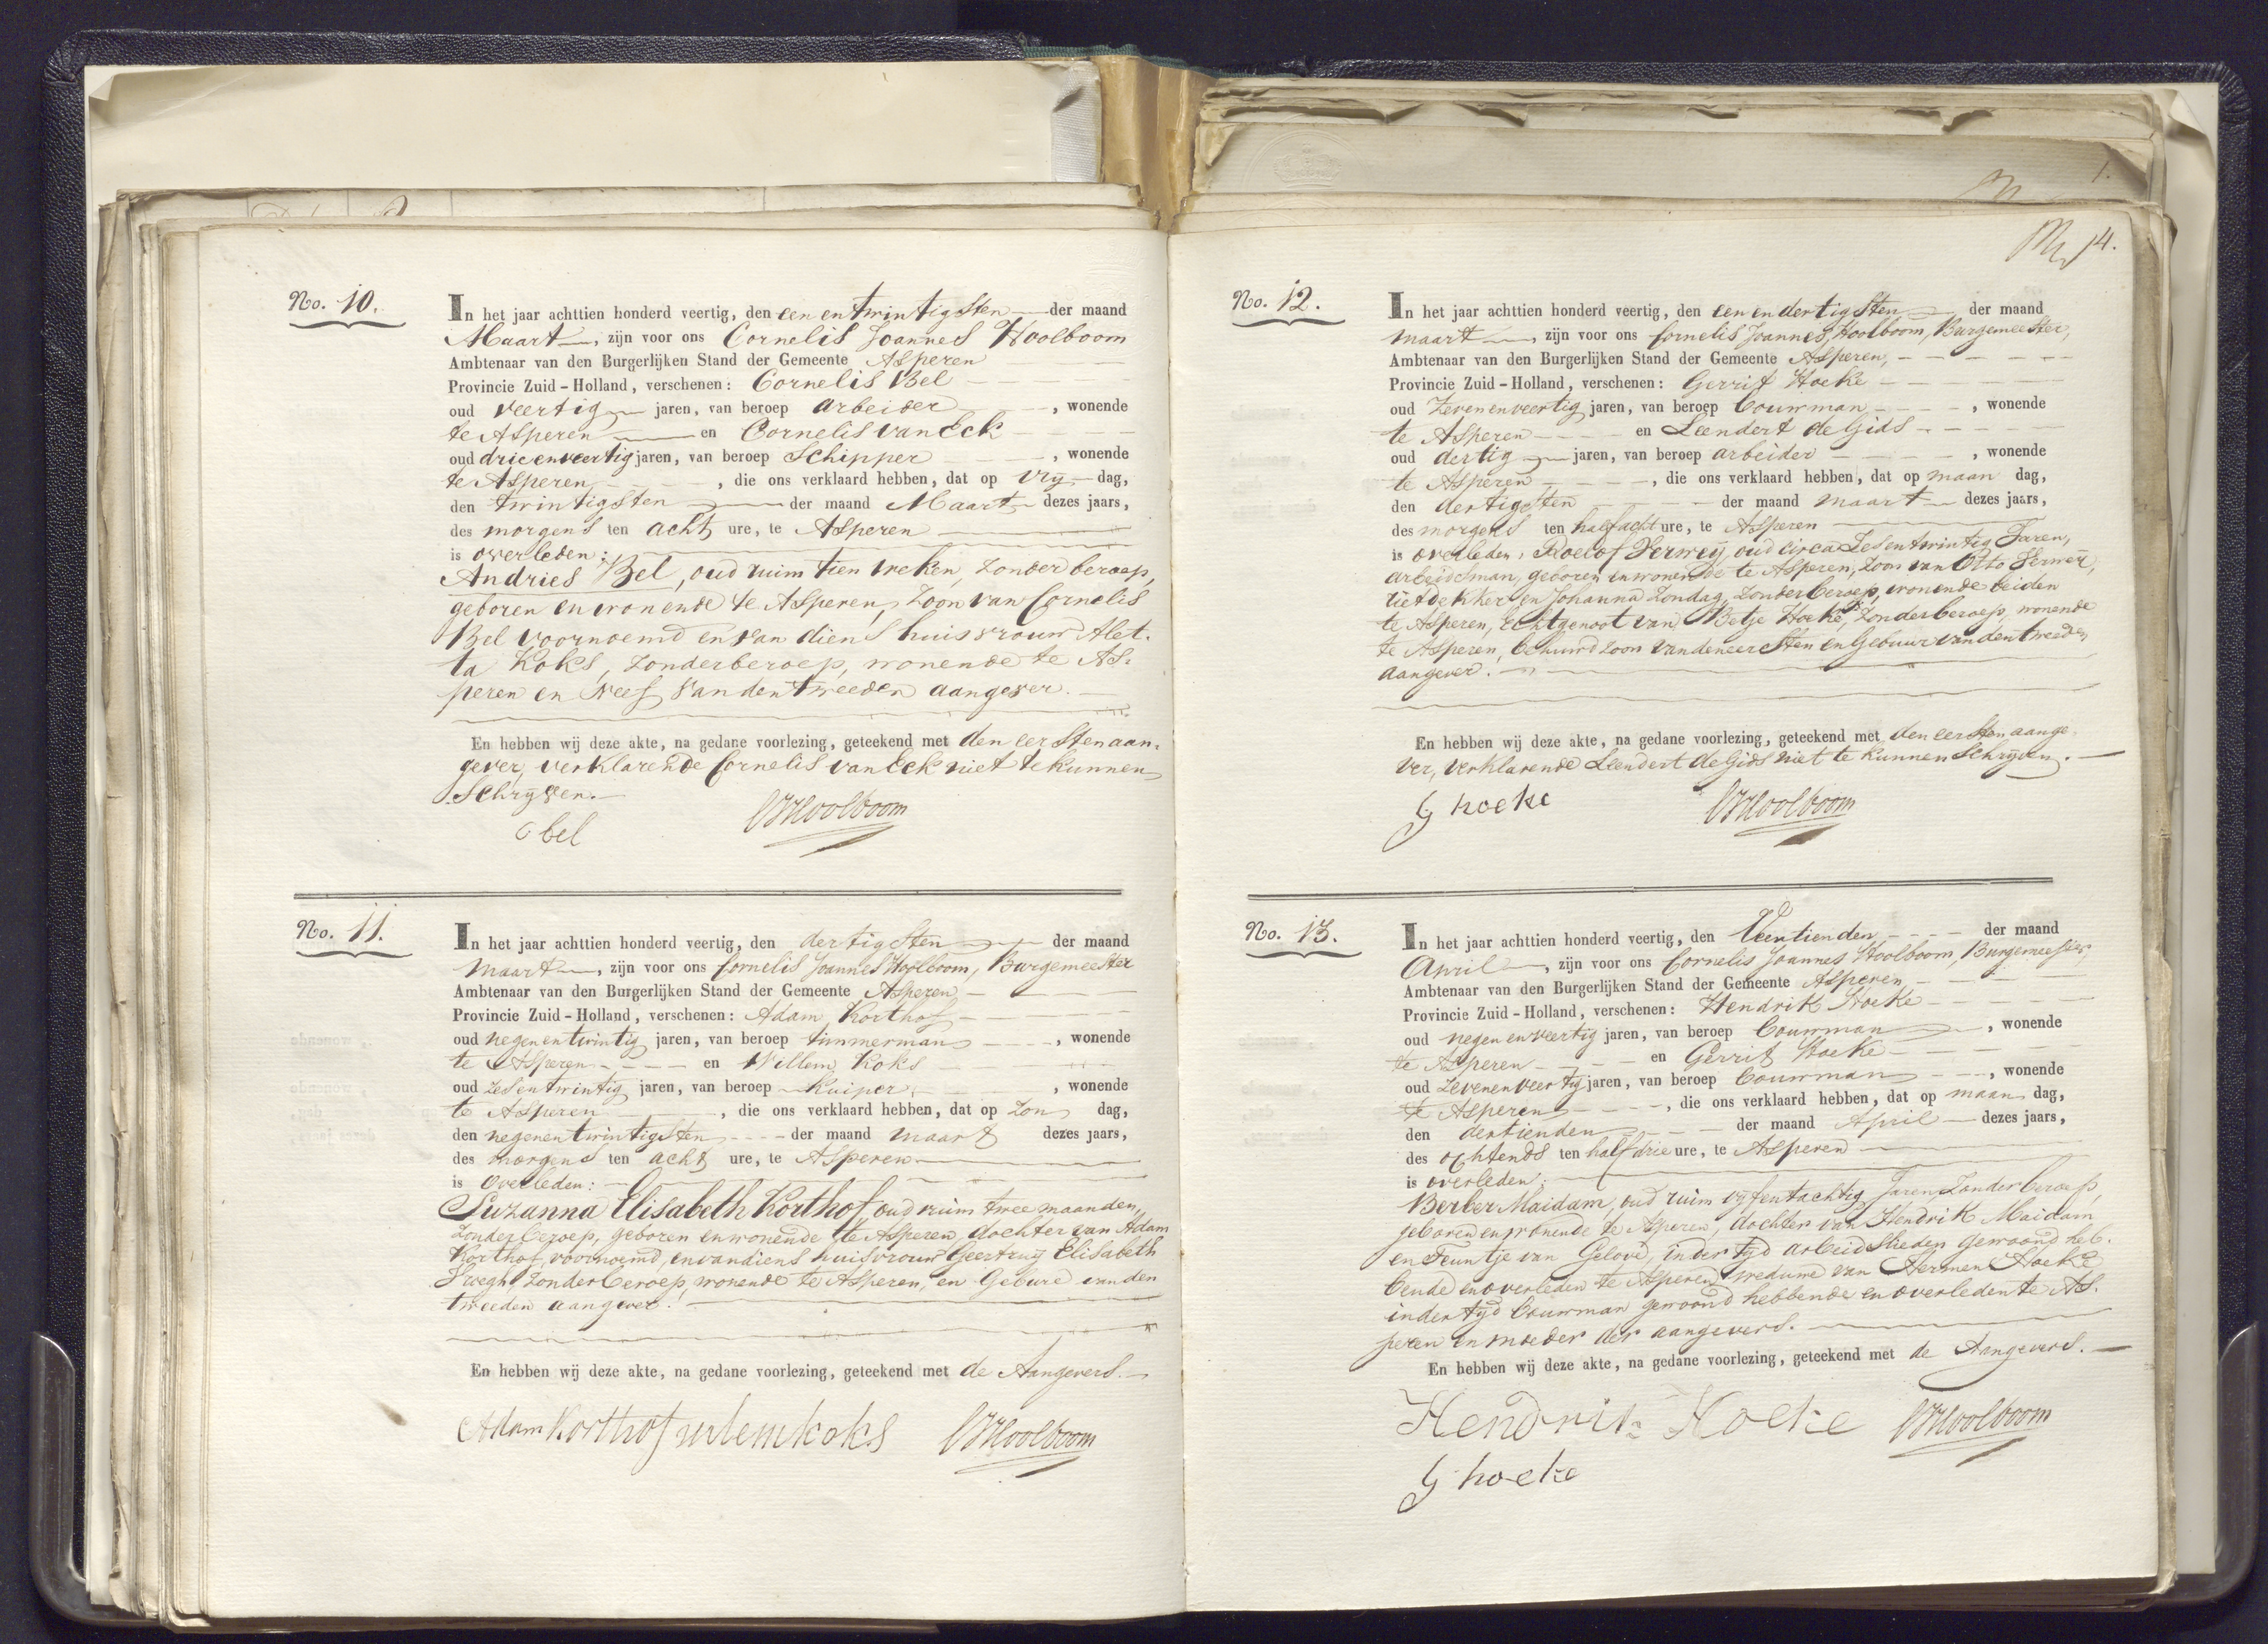 No. 10.
In het jaar achttien honderd veertig, den een en twintigsten der maand
Maart, zijn voor ons Cornelis Joannes Hoolboom
Ambtenaar van den Burgerlijken Stand der Gemeente Asperen
Provincie Zuid-Holland, verschenen: Cornelis Bel
oud veertig jaren, van beroep arbeider, wonende
te Asperen en Cornelis van Eck
oud drie en veertig jaren, van beroep Schipper, wonende
te Asperen, die ons verklaard hebben, dat op Vrij dag,
den twintigsten der maand Maart dezes jaars,
des morgens ten acht ure, te Asperen
is overleden:
Andries Bel, oud ruim tien weken, zonder beroep,
geboren en wonende te Asperen, Zoon van Cornelis
Bel voornoemd en van diens huisvrouw Alet-
ta Koks, zonder beroep, wonende te As-
peren en Neef van den tweeden aangever.
En hebben wij deze akte, na gedane voorlezing, geteekend met den eersten aan-
gever, verklarende Cornelis van Eck niet te kunnen
Schrijven.
C bel CJHoolboom
No. 11.
In het jaar achttien honderd veertig, den dertigsten der maand
maart, zijn voor ons Cornelis Joannes Hoolboom, Burgemeester
Ambtenaar van den Burgerlijken Stand der Gemeente Asperen
Provincie Zuid-Holland, verschenen: Adam Korthof
oud negen en twintig jaren, van beroep timmerman, wonende
te Asperen en Willem Koks
oud zes en twintig jaren, van beroep Kuiper, wonende
te Asperen, die ons verklaard hebben, dat op Zon dag,
den negen en twintigsten der maand maart dezes jaars,
des morgens ten acht ure, te Asperen
is Overleden:
Suzanna Elisabeth Korthof, oud ruim twee maanden,
zonder beroep, geboren en wonende te Asperen, dochter van Adam
Korthof, voornoemd, en van diens huisvrouw Geertruij Elisabeth
zonder beroep, wonende te Asperen, en Gebure van den
tweeden aangever.
En hebben wij deze akte, na gedane voorlezing, geteekend met de Aangevers.
Adam Korthof wilem koks CJHoolboom
14.
No. 12.
In het jaar achttien honderd veertig, den een en dertigsten der maand
maart, zijn voor ons Cornelis Joannes Hoolboom, Burgemeester,
Ambtenaar van den Burgerlijken Stand der Gemeente Asperen,
Provincie Zuid-Holland, verschenen: Gerrit Hoeke
oud Zeven en veertig jaren, van beroep bouwman, wonende
te Asperen en Leendert de Gids
oud dertig jaren, van beroep arbeider, wonende
te Asperen, die ons verklaard hebben, dat op maan dag,
den dertigsten der maand maart dezes jaars,
des morgens ten half acht ure, te Asperen
is overleden, Roelof Serweij, oud circa Zes en twintig Jaren,
arbeidsman, geboren en wonende te Asperen, Zoon van Otto Serweij,
rietdekker en Johanna Zondag, Zonder beroep, wonende beiden
te Asperen, Echtgenoot van Betje Hoeke, Zonder beroep, wonende
te Asperen, behuwd zoon van den eersten en Gebuur van den tweeden
aangever.
En hebben wij deze akte, na gedane voorlezing, geteekend met den eersten aange-
ver, verklarende Leendert de Gids niet te kunnen Schrijven.
G hoeke CJHoolboom
No. 13.
In het jaar achttien honderd veertig, den Veertienden der maand
April, zijn voor ons Cornelis Joannes Hoolboom, Burgemeester,
Ambtenaar van den Burgerlijken Stand der Gemeente Asperen
Provincie Zuid-Holland, verschenen: Hendrik Hoeke
oud negen en veertig jaren, van beroep bouwman, wonende
te Asperen en Gerrit Hoeke
oud Zeven en veertig jaren, van beroep bouwman, wonende
te Asperen, die ons verklaard hebben, dat op maan dag,
den dertienden der maand April dezes jaars,
des ochtends ten half drie ure, te Asperen
is overleden:
Berber Maidam, oud ruim vijf en tachtig Jaren, Zonder beroep,
geboren en wonende te Asperen, dochter van Hendrik Maidam
en Teuntje van Gelove, in der tijd arbeidslieden gewoond heb-
bende en overleden te Asperen, weduwe van Hermen Hoeke
in der tijd bouwman gewoond hebbende en overleden te As-
peren en moeder der aangevers.
En hebben wij deze akte, na gedane voorlezing, geteekend met de Aangevers.
Hendrik Hoeke CJHoolboom
G hoeke